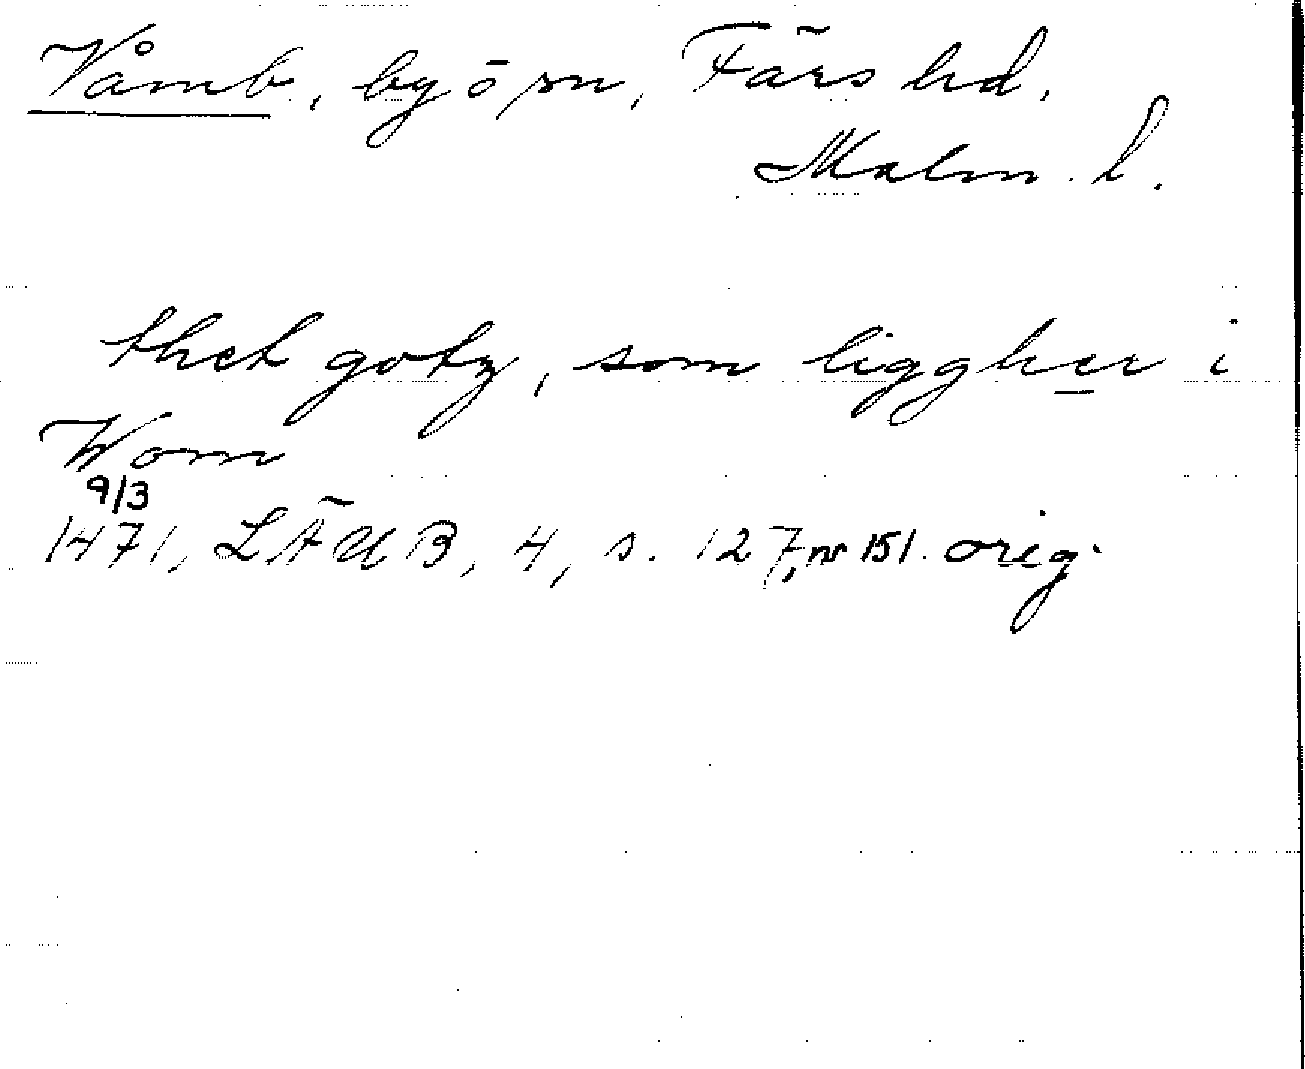 Våmb, by ō sn, Färs hd.
Malm. l.
thet gotz, som liggher i
Wom
9/3
1471, LÄUB, 4, s. 127, nr 151. orig.